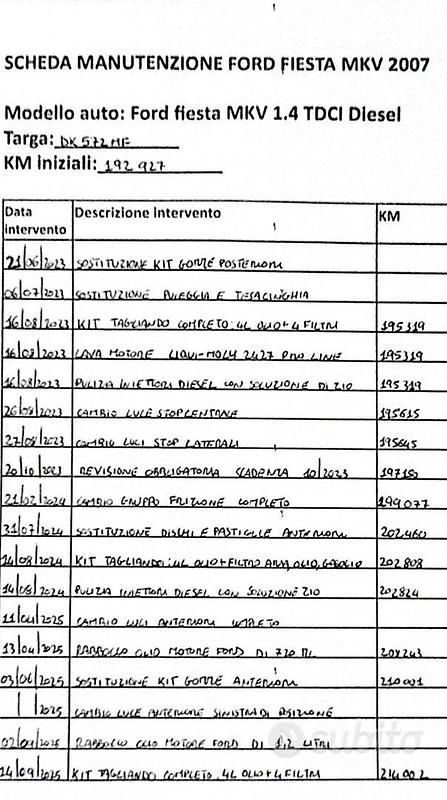 SCHEDA MANUTENZIONE FORD FIESTA MKV 2007
Modello auto: Ford fiesta MKV 1.4 TDCI Diesel
Targa: DK572MF
KM iniziali: 192 927
Data intervento Descrizione Intervento KM
21/06/2023 SOSTITUZIONE KIT GOMME POSTERIORI
06/07/2023 SOSTITUZIONE PULEGGIA E TENDICINGHIA
16/08/2023 KIT TAGLIANDO COMPLETO: 4L OLIO + 4 FILTRI 195319
16/08/2023 LAVA MOTORE LIQUI-MOLY 2427 PRO LINE 195319
16/08/2023 PULIZIA INIETTORI DIESEL CON SOLUZIONE DI ZIO 195319
26/08/2023 CAMBIO LUCE STOP CENTRALE 195615
27/08/2023 CAMBIO LUCI STOP LATERALI 195645
20/10/2023 REVISIONE OBBLIGATORIA SCADENZA 10/2023 197150
21/02/2024 CAMBIO GRUPPO FRIZIONE COMPLETO 199077
31/07/2024 SOSTITUZIONE DISCHI E PASTIGLIE ANTERIORI 202460
14/08/2024 KIT TAGLIANDO: 4L OLIO + FILTRO ARIA, OLIO, GASOLIO 202808
14/08/2024 PULIZIA INIETTORI DIESEL CON SOLUZIONE ZIO 202824
11/04/2025 CAMBIO LUCI ANTERIORI
13/04/2025 RABBOCCO OLIO MOTORE FORD DI 720 ML 208243
03/06/2025 SOSTITUZIONE KIT GOMME ANTERIORI 210001
/ /2025 CAMBIO LUCE ANTERIORE SINISTRA DI POSIZIONE
2025 RABBOCCO OLIO MOTORE FORD DI 1,2 LITRI
14/09/2025 KIT TAGLIANDO COMPLETO: 4L OLIO + 4 FILTRI 214002
subito